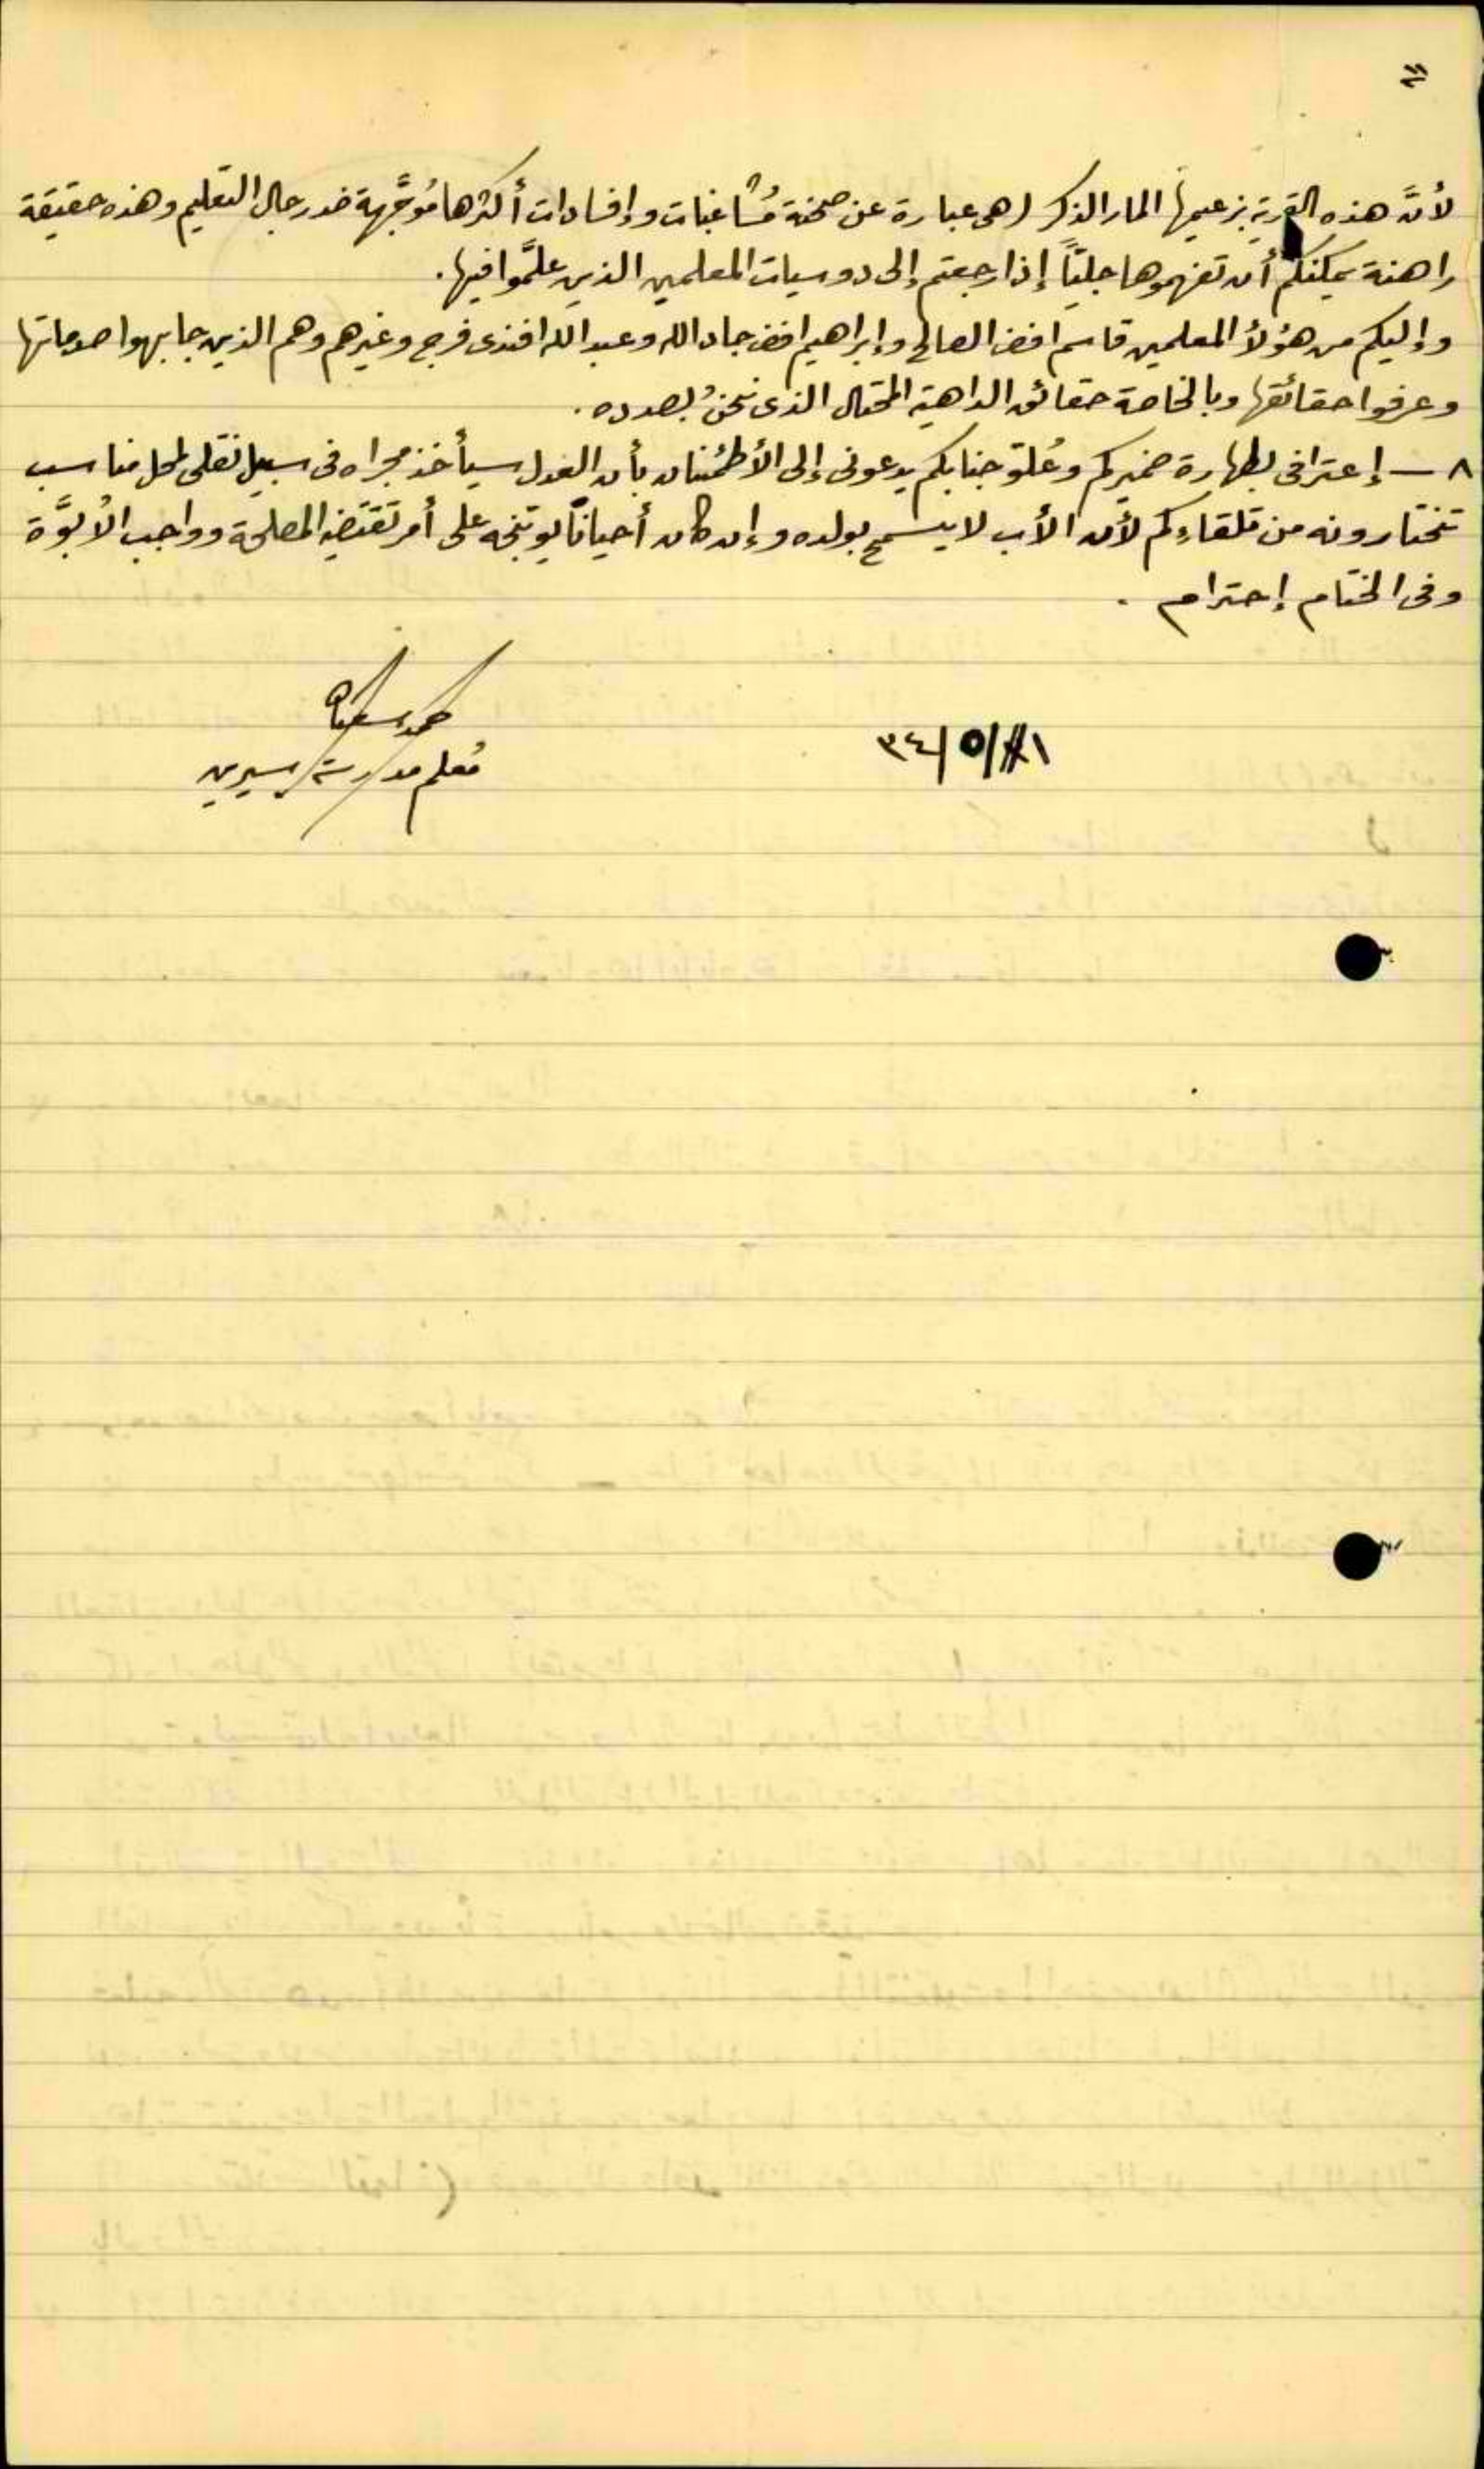 لأنَّ هذه القرية بزعيمها المار الذكر لهى عبارة عن صحنة مُشاغبات وإفسادات أكثرها مُوجَّهة ضد رجال التعليم وهذه حقيقة
راهنة يمكنكم أن تفهموها جليّاً إذا رجعتم إلى دوسيات المعلمين الذين علَّموا فيها.
وإليكم من هؤلأ المعلمين قاسم افندى الصالح وإبراهيم افندى جاد الله وعبد الله افندى فرج وغيرهم وهم الذين جابهوا صدماتها
وعرفوا حقائقها وبالخاصة حقائق الداهية المحتال الذى نحنُ بصدده.
٨ — إعترافى بطهارة ضميركم وعُلوّ جنابكم يدعونى إلى الأطمئنان بأن العدل سيأخذ مجراه فى سبيل نقلى لمحل مناسب
تختارونه من تلقاءِكم لأن الأب لا يسمح بولده وإن كان أحياناً يوبّخه على أمر تقتضيه المصلحة وواجب الأبوَّة
وفى الختام إحترام .
٣٤/٥/١
معلم مدرسة سيرين